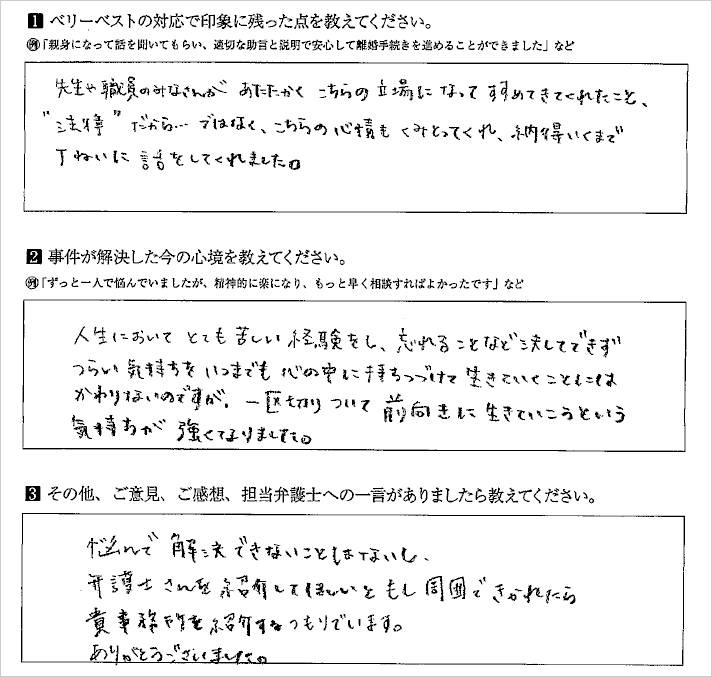 1 ベリーベストの対応で印象に残った点を教えてください。
例「親身になって話を聞いてもらい、適切な助言と説明で安心して離婚手続きを進めることができました」など
先生や職員のみなさんが あたたかく こちらの立場になって すすめてきてくれたこと、
"法律" だから… ではなく、こちらの心情も くみとってくれ、納得いくまで
丁ねいに 話をしてくれました。
2 事件が解決した今の心境を教えてください。
例「ずっと一人で悩んでいましたが、精神的に楽になり、もっと早く相談すればよかったです」など
人生において とても 苦しい 経験をし、忘れることなど 決してできず
つらい 気持ちを いつまでも 心の中に 持ちつづけて 生きていくことには
かわりないのですが、一区切り ついて 前向きに 生きていこうという
気持ちが 強くなりました。
3 その他、ご意見、ご感想、担当弁護士への一言がありましたら教えてください。
悩んで 解決できないことはないし、
弁護士さんを 紹介してほしいと もし 周囲できかれたら
貴事務所を 紹介するつもりでいます。
ありがとうございました。